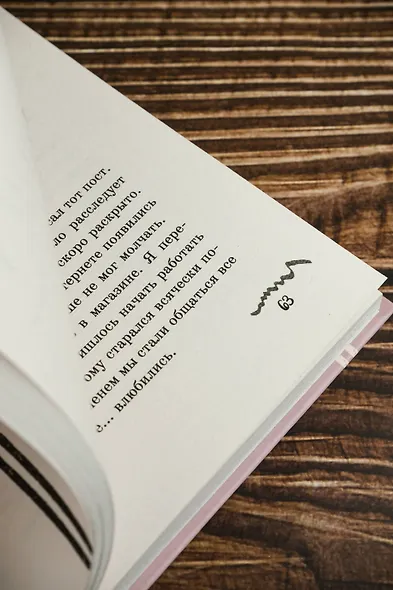 ал тот пост.
ло расследует
скоро раскрыто.
тернете появились
ше не мог молчать.
в магазине. Я пере-
ишлось начать работать
ому старался всячески по-
енем мы стали общаться все
е... влюбились.
63